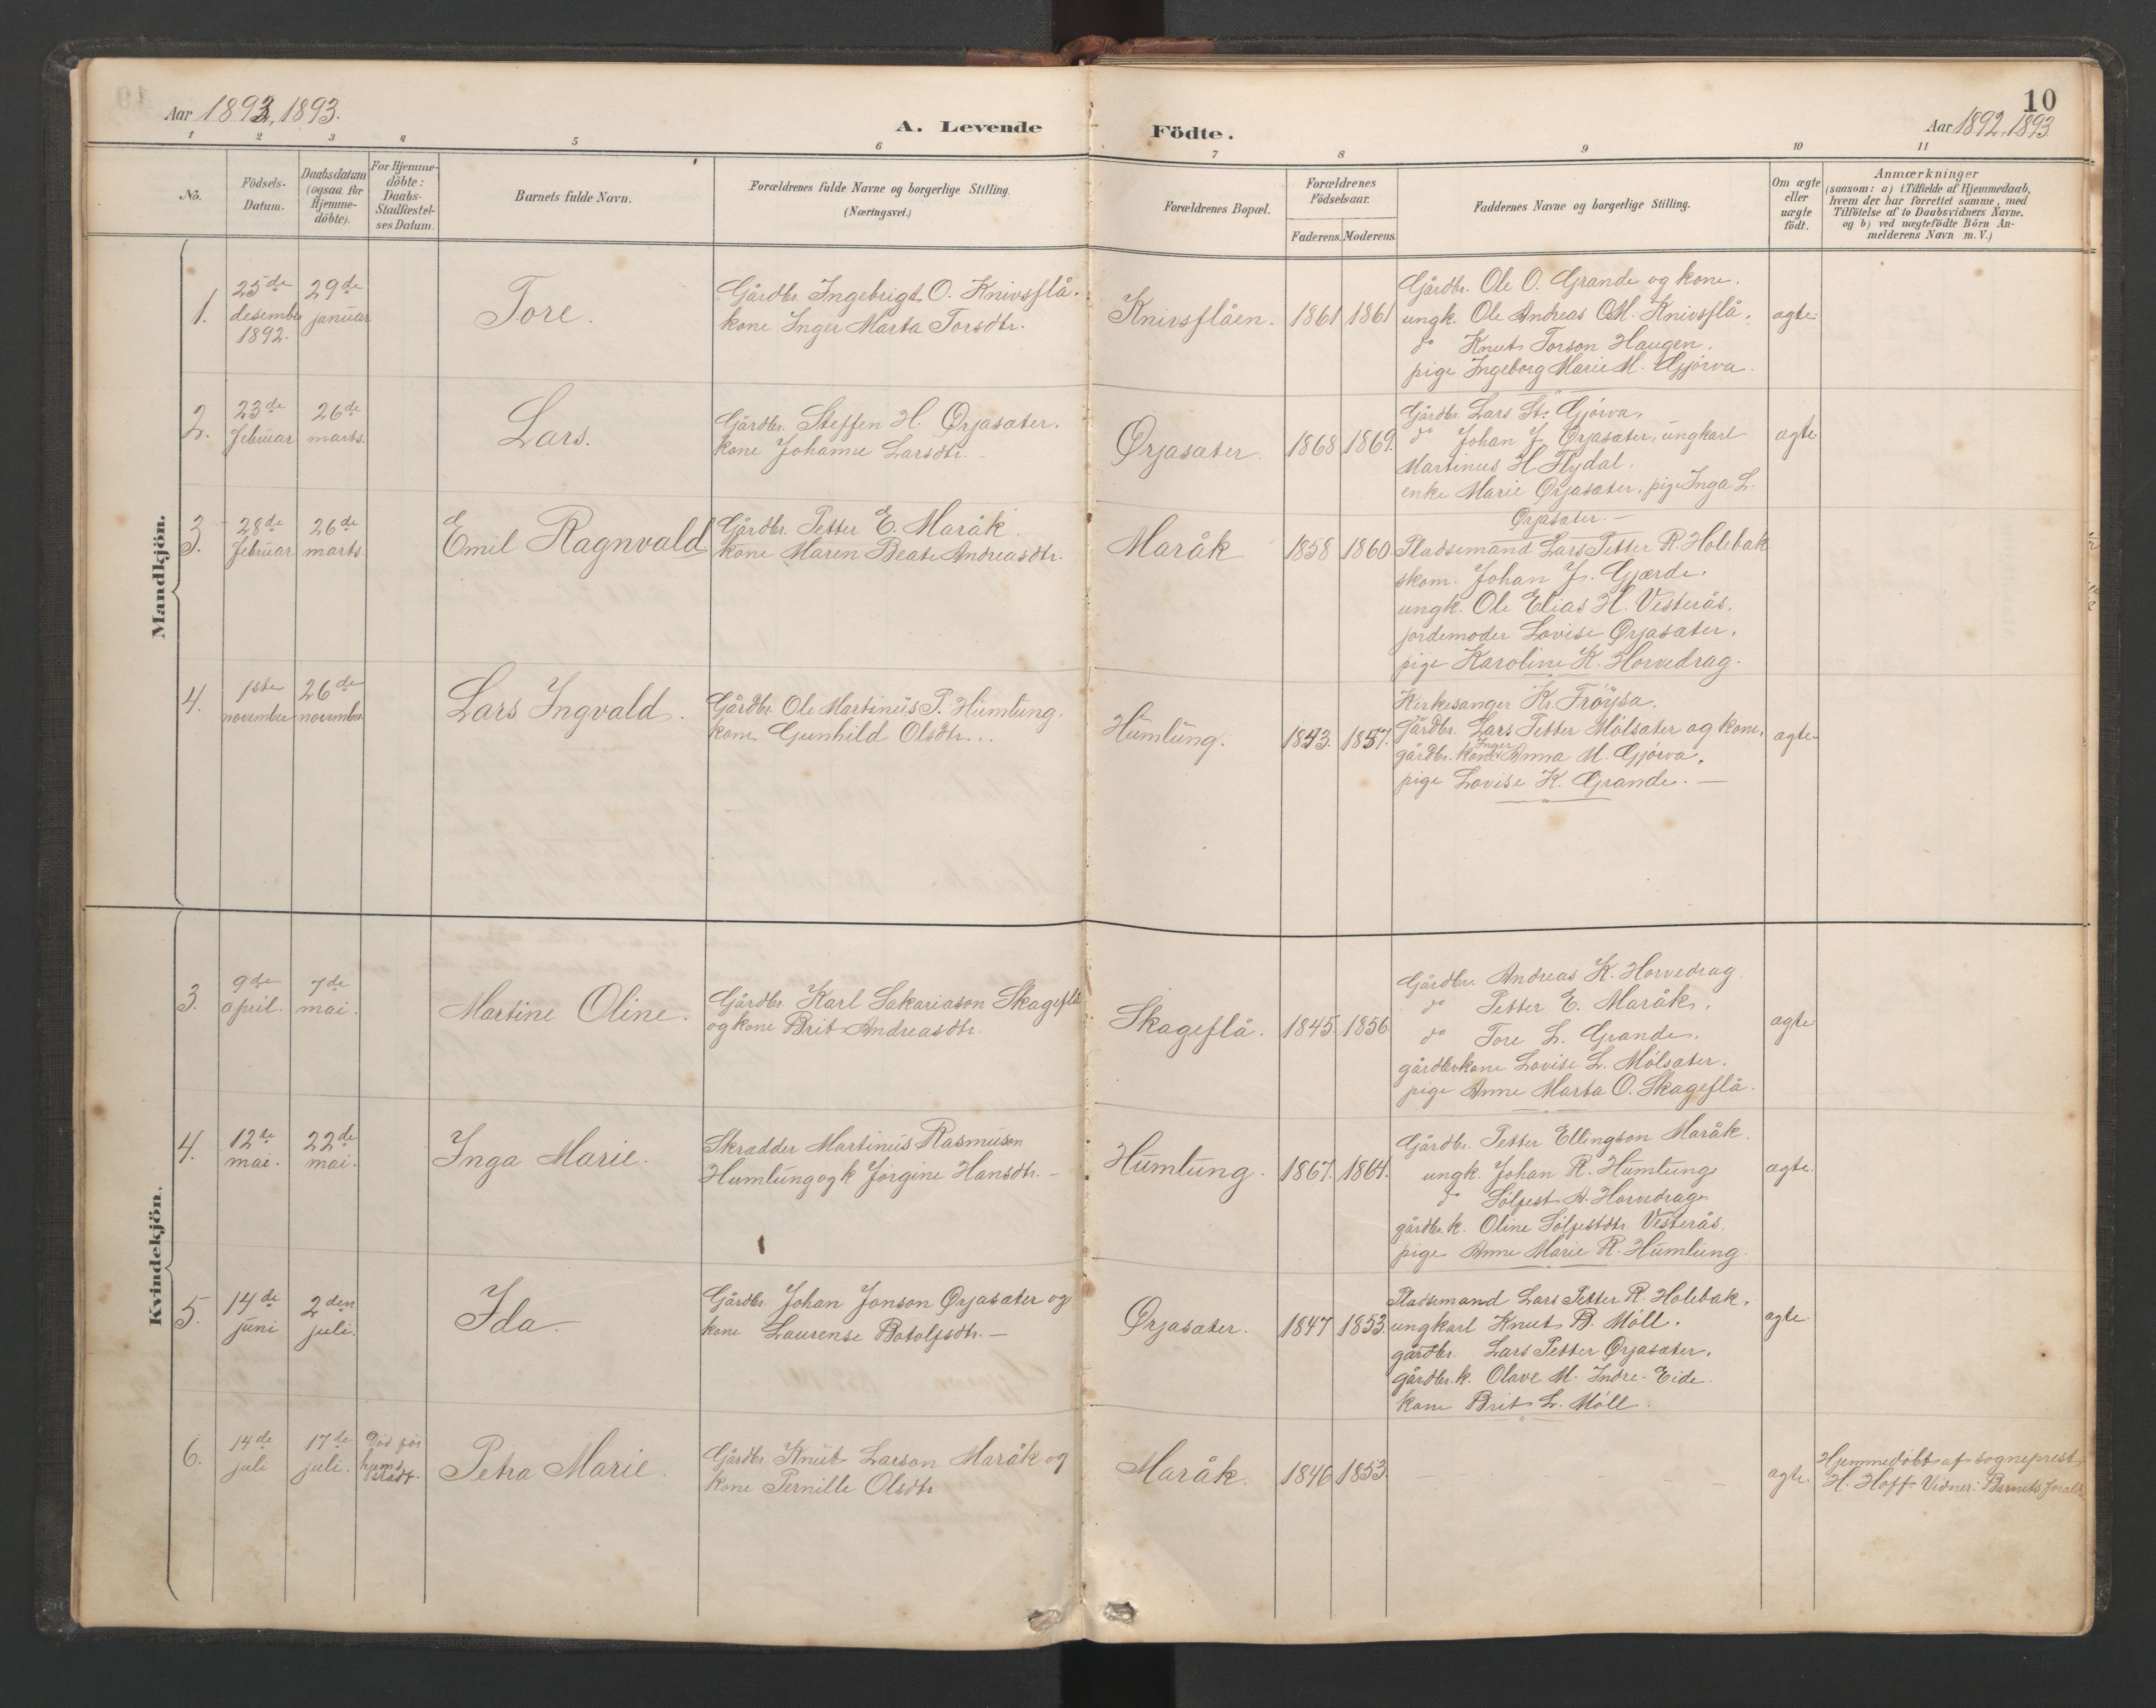 Aar 1892, 1893.
A. Levende
Födte.
10
Aar 1892, 1893
1 2 3 4 5 6 7 8 9 10 11
No.
Födsels-Datum.
Daabsdatum (ogsaa for Hjemme-döbte).
For Hjemme-döbte: Daabs-Stadfæstel-ses Datum.
Barnets fulde Navn.
Forældrenes fulde Navne og borgerlige Stilling.
(Næringsvei.)
Forældrenes Bopæl.
Forældrenes Födselsaar.
Faderens. Moderens.
Faddernes Navne og borgerlige Stilling.
Om ægte eller uægte födt.
Anmærkninger
(saasom: a) i Tilfælde af Hjemmedaab,
hvem der har forrettet samme, med
Tilföielse af to Daabsvidners Navne,
og b) ved uægtefödte Börn An-
melderens Navn m. V.)
Mandkjön.
1.
25de desember 1892.
29de januar
Tore.
Gårdbr. Ingebrigt O. Knivsflå.
kone Inger Marta Torsdtr.
Knivsflåen.
1861 1861
Gårdbr. Ole O. Grande og kone.
ungk. Ole Andreas O.M. Knivsflå.
do Knut Torson Haugen.
pige Ingeborg Marie M. Gjørva.
ægte
2.
23de februar
26de marts.
Lars.
Gårdbr. Steffen H. Ørjasæter.
kone Johanne Larsdtr.
Ørjasæter.
1868 1869.
Gårdbr. Lars St. Gjørva,
do Johan J. Ørjasæter, ungkarl
Martinus H. Flydal.
enke Marie Ørjasæter, pige Inga L.
Ørjasæter. —
ægte
3.
28de februar
26de marts
Emil Ragnvald
Gårdbr. Petter E. Maråk
kone Maren Beate Andreasdtr.
Maråk
1858 1860
Pladsemand Lars Petter R. Holebak
skom. Johan J. Gjærde.
ungk. Ole Elias H. Vesterås.
jordemoder Lovise Ørjasæter.
pige Karoline K. Horvedrag.
4.
1ste november
26de november
Lars Ingvald.
Gårdbr. Ole Martinus P. Humlung.
kone Gunhild Olsdtr.
Humlung.
1853. 1857.
Kirkesanger Kr. Frøysa.
Gårdbr. Lars Petter Mølsæter og kone,
gårdbr. kone Inger Anna M. Gjørva.
pige Lovise K. Grande. —
ægte
Kvindekjön.
3.
9de april.
7de mai.
Martine Oline.
Gårdbr. Karl Sakariason Skageflå
og kone Brit Andreasdtr.
Skageflå.
1845. 1856.
Gårdbr. Andreas K. Horvedrag
do Petter E. Maråk.
do Tore L. Grande.
gårdbrkone Lovise L. Mølsæter.
pige Anne Marta O. Skageflå.
ægte
4.
12te mai.
22de mai.
Inga Marie.
Skrædder Martinus Rasmusen
Humlung og k Jørgine Hansdtr. —
Humlung.
1867. 1864.
Gårdbr. Petter Ellingson Maråk.
ungk. Johan R. Humlung
do Sølfest A. Horvedrag
gårdbr.k. Oline Sølfestdtr. Vesterås.
pige Anne Marie R. Humlung.
ægte.
5.
14de juni
2den juli.
Ida
Gårdbr. Johan Jonson Ørjasæter og
kone Laurense Botolfsdtr. —
Ørjasæter.
1847 1853.
Pladsemand Lars Petter R. Holebak.
ungkarl Knut B. Møll.
gårdbr. Lars Petter Ørjasæter.
gårdbr.k. Olave M. Indre-Eide.
kone Brit L. Møll.
ægte
6.
14de juli
17de juli.
Død før
Petra Marie.
Gårdbr. Knut Larson Maråk og
kone Pernille Olsdtr
Maråk.
1846 1853.
ægte.
Hjemmedøbt af sogneprest
H. Hoff. Vidner: Barnets forældre